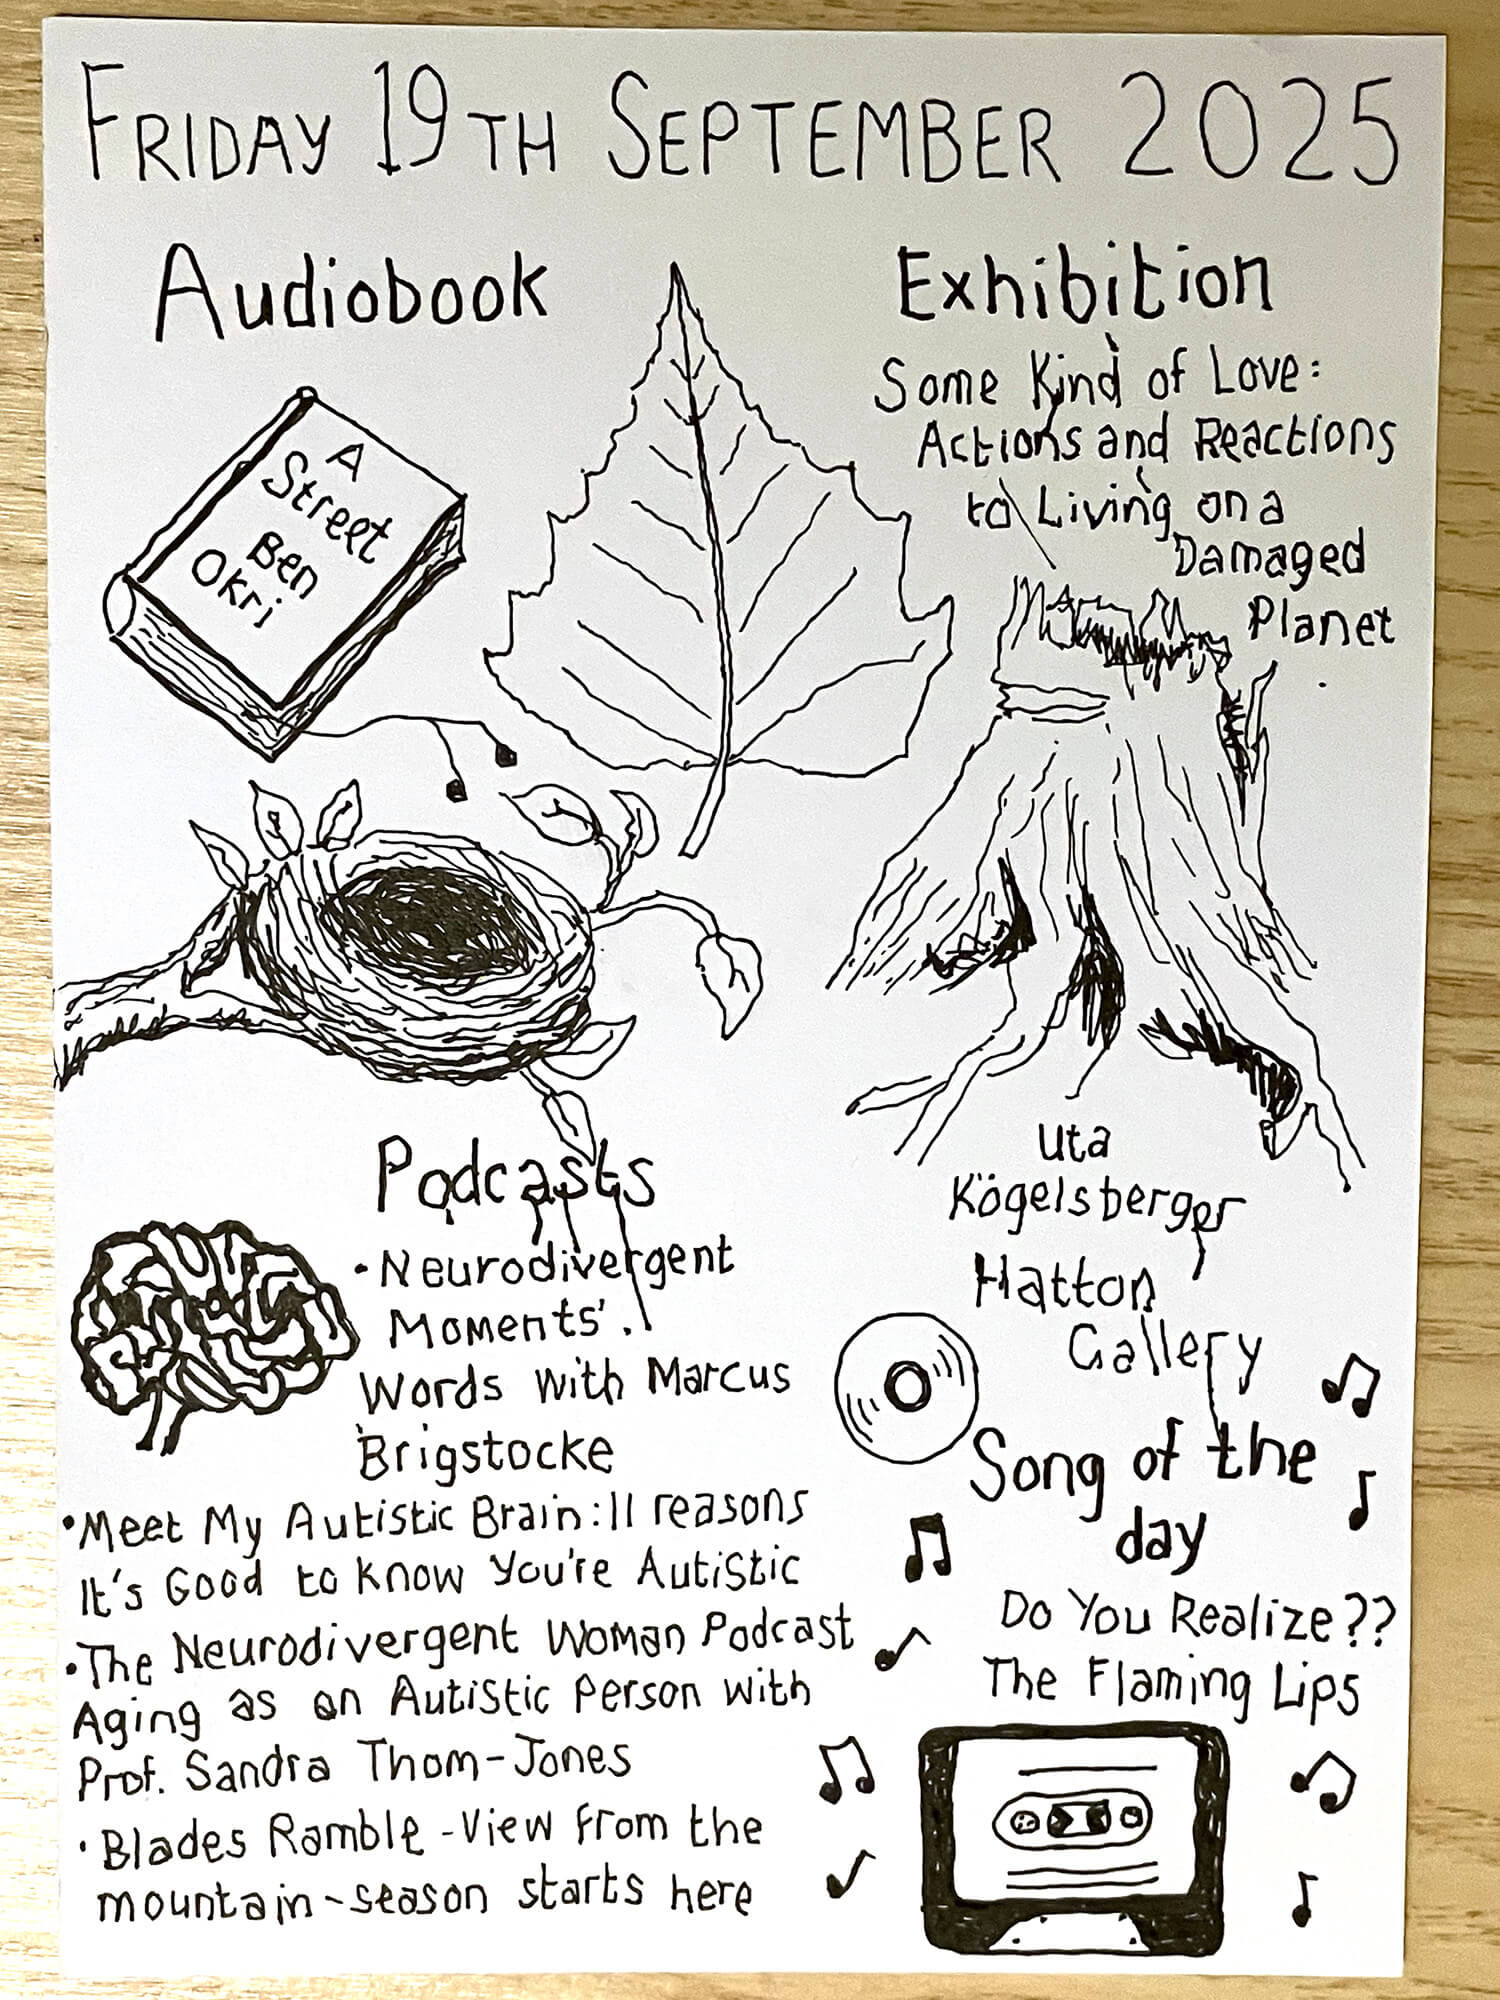 FRIDAY 19TH SEPTEMBER 2025
Audiobook
A
Street
Ben
Okri
Exhibition
Some Kind of Love:
Actions and Reactions
to Living on a
Damaged
Planet
Uta
Kögelsberger
Hatton
Gallery
Podcasts
• Neurodivergent
Moments'.
Words with Marcus
Brigstocke
• Meet My Autistic Brain: 11 reasons
It's Good to Know You're Autistic
• The Neurodivergent Woman Podcast
Aging as an Autistic Person with
Prof. Sandra Thom-Jones
• Blades Ramble - View from the
mountain - season starts here
Song of the
day
Do You Realize??
The Flaming Lips